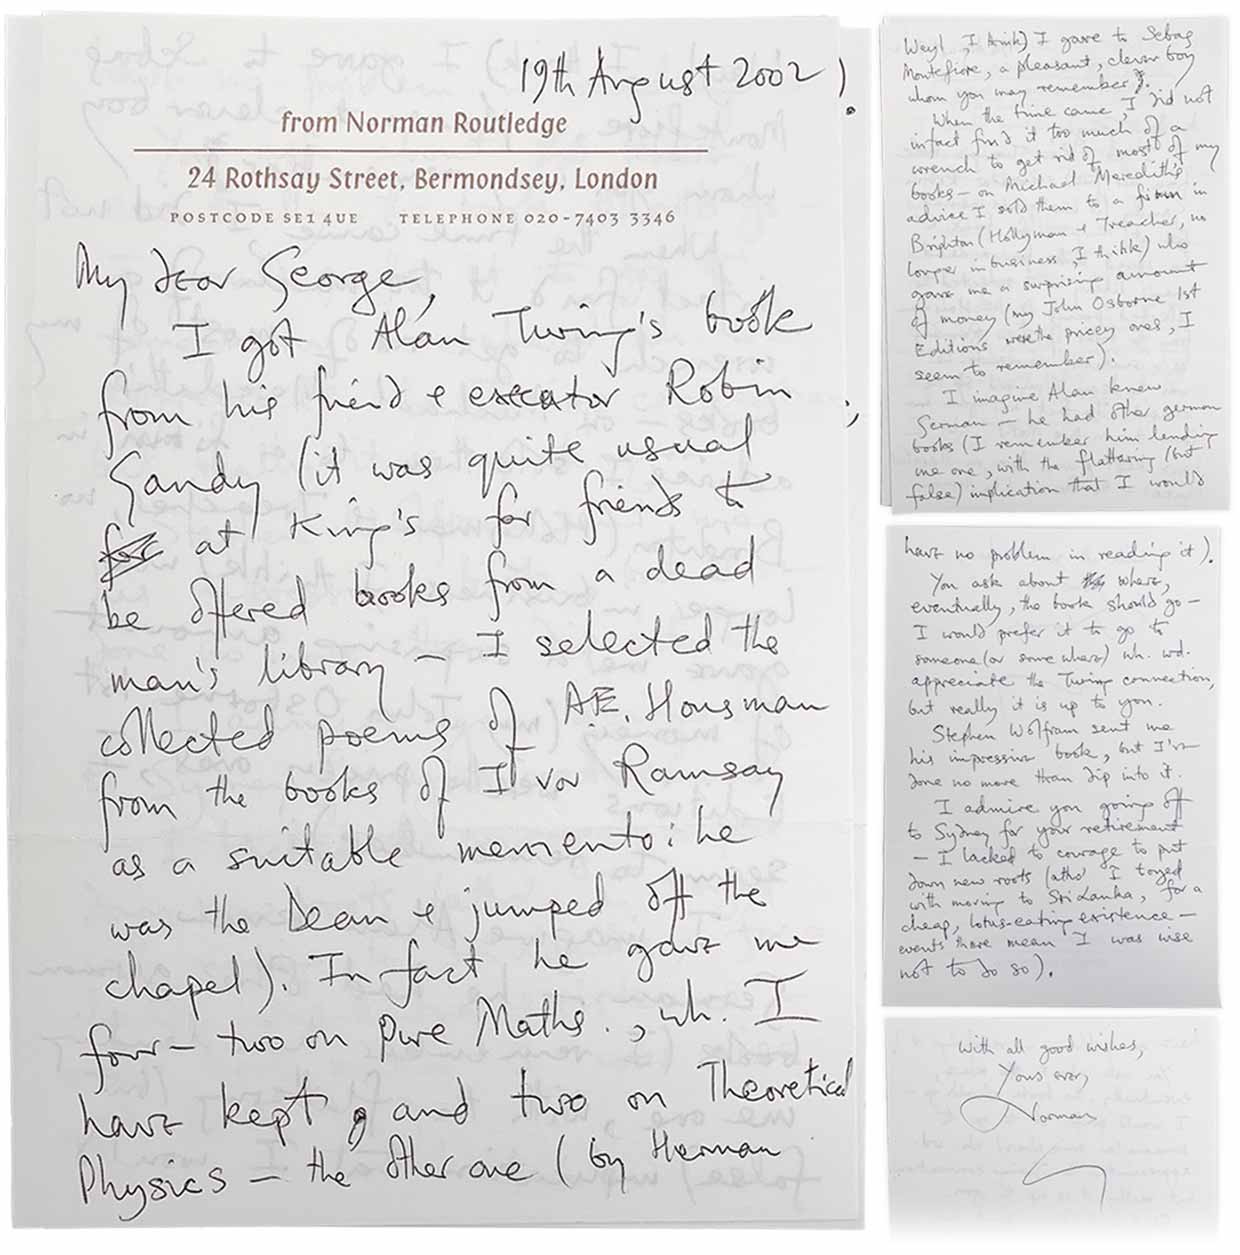 19th August 2002
from Norman Routledge
24 Rothsay Street, Bermondsey, London
POSTCODE SE1 4UE TELEPHONE 020-7403 3346
My dear George,
I got Alan Turing's book
from his friend & executor Robin
Gandy (it was quite usual
for at King's for friends to
be offered books from a dead
man's library — I selected the
collected poems of A.E. Housman
from the books of Ivor Ramsay
as a suitable memento: he
was the Dean & jumped off the
chapel). In fact he gave me
four — two on Pure Maths., wh. I
have kept, and two on Theoretical
Physics — the other one (by Herman
Weyl, I think) I gave to Sebag
Montefiore, a pleasant, clever boy
whom you may remember).
When the time came, I did not
in fact find it too much of a
wrench to get rid of most of my
books — on Michael Meredith's
advice I sold them to a firm in
Brighton (Holleyman & Treacher, no
longer in business, I think) who
gave me a surprising amount
of money (my John Osborne 1st
Editions were the pricey ones, I
seem to remember).
I imagine Alan knew
German — he had other german
books (I remember him lending
me one, with the flattering (but
false) implication that I would
have no problem in reading it).
You ask about where,
eventually, the book should go —
I would prefer it to go to
someone (or some where) wh. wd.
appreciate the Turing connection,
but really it is up to you.
Stephen Wolfram sent me
his impressive book, but I've
done no more than dip into it.
I admire you going off
to Sydney for your retirement
— I lacked to courage to put
down new roots (altho' I toyed
with moving to Sri Lanka, for a
cheap, lotus-eating existence —
events there mean I was wise
not to do so).
With all good wishes,
Yours ever,
Norman